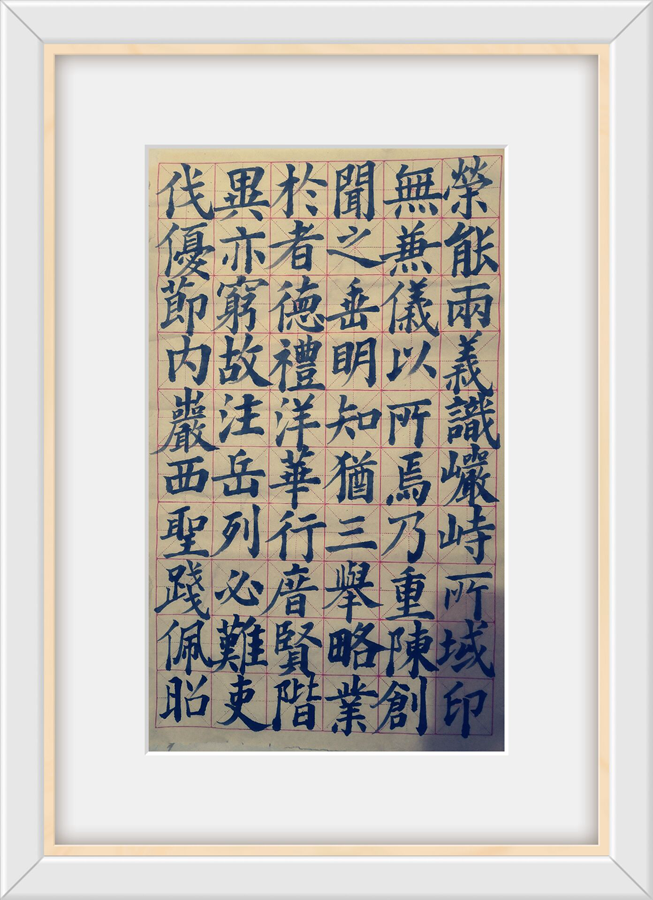 榮能兩義識巗峙所域印
無兼儀以所焉乃重陳創
聞之垂明知猶三舉略業
於者德禮洋華行賢階
異亦窮故注岳列必難吏
伐優節内巖西聖踐佩昭